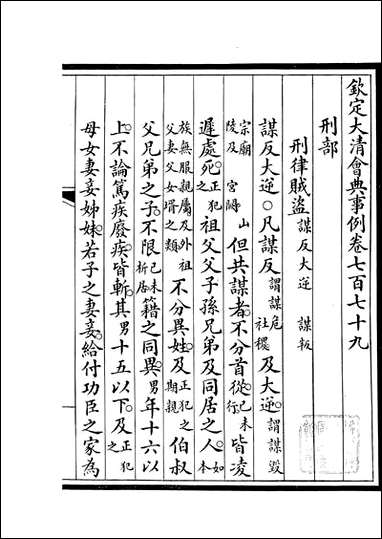 欽定大清會典事例卷七百七十九
刑部
刑律賊盜謀反大逆 謀叛
謀反大逆○凡謀反謂謀危社稷及大逆謂謀毀
宗廟山陵及宮闕但共謀者不分首從已未行皆凌
遲處死正犯之祖父父子孫兄弟及同居之人如本
族無服親屬及外祖父妻父女壻之類不分異姓及正犯之期親伯叔
父兄弟之子不限已未析居籍之同異男年十六以
上不論篤疾廢疾皆斬其男十五以下及正犯之
母女妻妾姊妹若子之妻妾給付功臣之家為